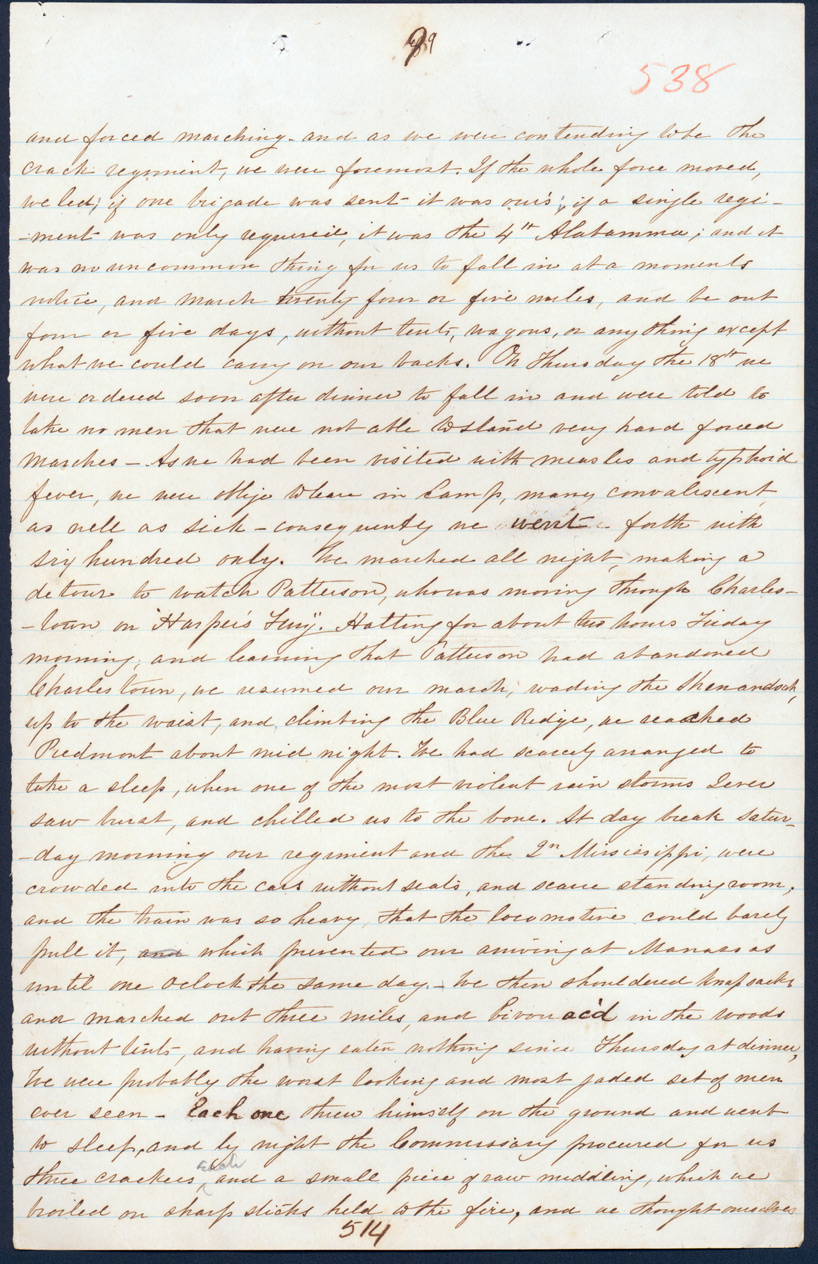 9
538
and forced marching - and as we were contending to be the
crack regiment, we were foremost. If the whole force moved,
we led; if one brigade was sent - it was our's; if a single regi-
-ment was only required, it was the 4th Alabamma; and it
was no uncommon thing for us to fall in at a moments
notice, and march twenty four or five miles, and be out
four or five days, without tents, wagons, or any thing except
what we could carry on our backs. On Thursday the 18th we
were ordered soon after dinner to fall in and were told to
take no men that were not able to stand very hard forced
marches - As we had been visited with measles and typhoid
fever, we were oblije to leave in Camp, many convalescent,
as well as sick - consequently we went - forth with
six hundred only. We marched all night, making a
detour to watch Patterson, who was moving through Charles-
-town on "Harper's Ferry". Halting for about two hours Friday
morning, and learning that Patterson had abandoned
Charlestown, we resumed our march, wading the Shenandoah,
up to the waist, and climbing the Blue Ridge, we reached
Piedmont about mid night. We had scarcely arranged to
take a sleep, when one of the most violent rain storms I ever
saw burst, and chilled us to the bone. At day break Satur-
-day morning our regiment and the 2n Mississippi, were
crowded into the cars without seats, and scarce standing room,
and the train was so heavy, that the locomotive could barely
pull it, and which presented our arriving at Manassas
until one Oclock the same day. - We then shouldered knapsacks
and marched out three miles, and bivouac'd in the woods
without tents, and having eaten nothing since Thursday at dinner,
We were probably the worst looking and most jaded set of men
ever seen - Each one threw himself on the ground and went
to sleep, and by night the Commissary procured for us
three crackers each, and a small piece of raw middling, which we
broiled on sharp sticks held to the fire, and we thought ourselves
514